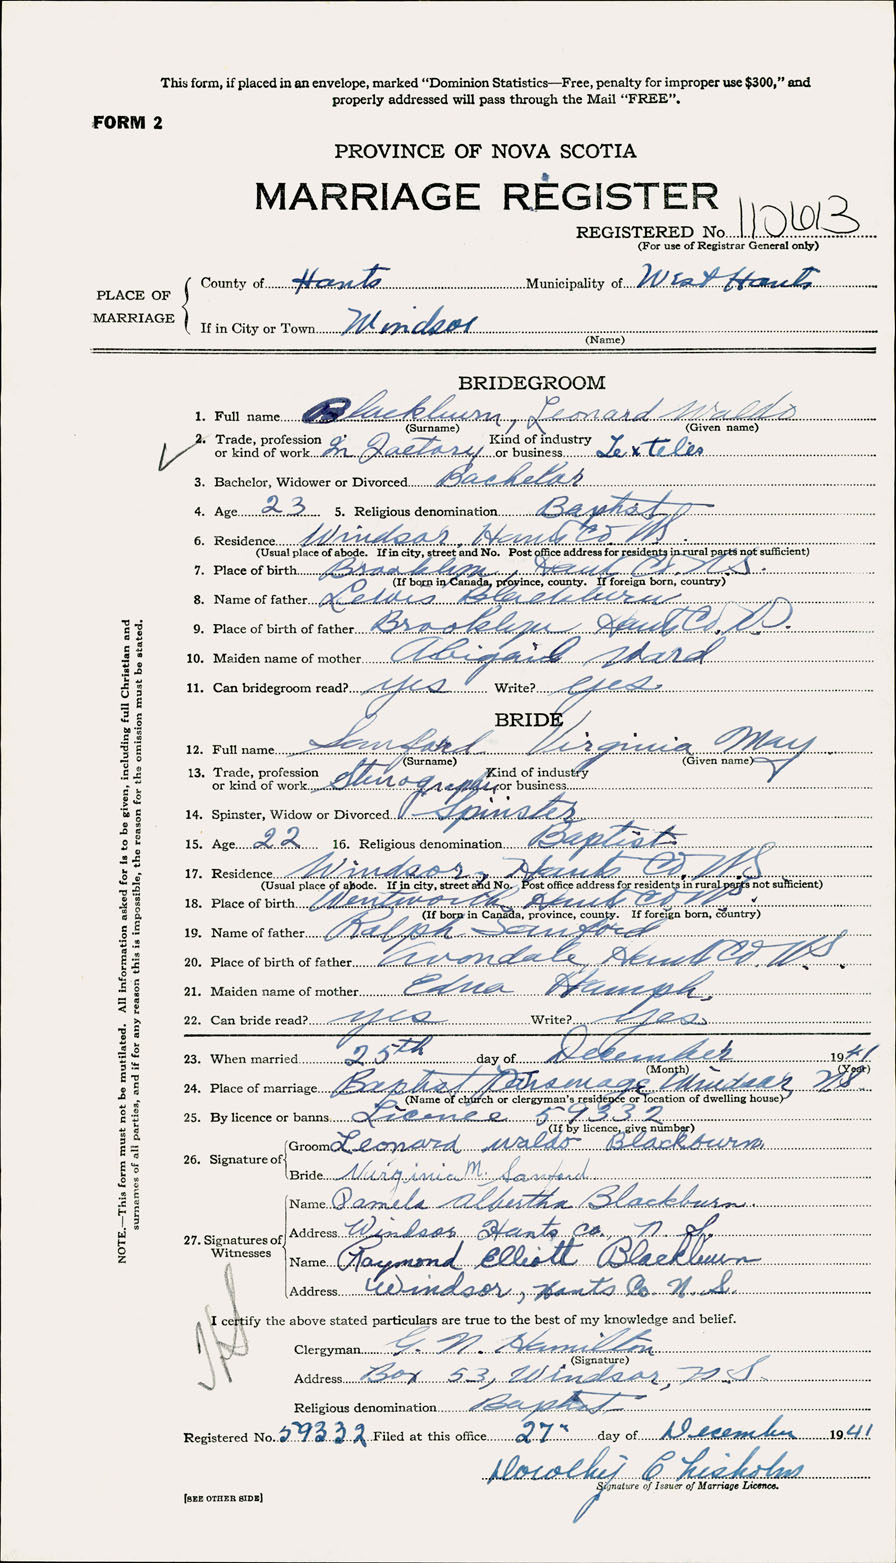 This form, if placed in an envelope, marked "Dominion Statistics—Free, penalty for improper use $300," and
properly addressed will pass through the Mail "FREE".
FORM 2
PROVINCE OF NOVA SCOTIA
MARRIAGE REGISTER
REGISTERED No. 110613
(For use of Registrar General only)
PLACE OF MARRIAGE
County of Hants Municipality of West Hants
If in City or Town Windsor
(Name)
BRIDEGROOM
1. Full name Blackburn, Leonard Waldo
(Surname) (Given name)
2. Trade, profession or kind of work In Factory Kind of industry or business Textiles
3. Bachelor, Widower or Divorced Bachelor
4. Age 23 5. Religious denomination Baptist
6. Residence Windsor, Hants Co NS.
(Usual place of abode. If in city, street and No. Post office address for residents in rural parts not sufficient)
7. Place of birth Brooklyn, Hants Co. N.S.
(If born in Canada, province, county. If foreign born, country)
8. Name of father Lewis Blackburn
9. Place of birth of father Brooklyn Hants Co. N.S.
10. Maiden name of mother Abigail Ward
11. Can bridegroom read? yes Write? yes.
BRIDE
12. Full name Sanford Virginia May
(Surname) (Given name)
13. Trade, profession or kind of work Stenographer Kind of industry or business
14. Spinster, Widow or Divorced Spinster
15. Age 22 16. Religious denomination Baptist
17. Residence Windsor, Hants Co. NS
(Usual place of abode. If in city, street and No. Post office address for residents in rural parts not sufficient)
18. Place of birth Wentworth Hants Co NS.
(If born in Canada, province, county. If foreign born, country)
19. Name of father Ralph Sanford
20. Place of birth of father Avondale Hants Co. N.S.
21. Maiden name of mother Edna
22. Can bride read? yes Write? yes.
23. When married 25th day of December 1941
(Month) (Year)
24. Place of marriage Baptist Parsonage Windsor, NS.
(Name of church or clergyman's residence or location of dwelling house)
25. By licence or banns Licence 59332
(If by licence, give number)
26. Signature of
Groom Leonard Waldo Blackburn
Bride Virginia M. Sanford
27. Signatures of Witnesses
Name Pamela Albertha Blackburn.
Address Windsor Hants Co., N.S.
Name Raymond Elliott Blackburn
Address Windsor, Hants Co. N.S.
I certify the above stated particulars are true to the best of my knowledge and belief.
Clergyman G. N. Hamilton
(Signature)
Address Box 53, Windsor, N.S.
Religious denomination Baptist
Registered No. 59332 Filed at this office 27th day of December 1941
Dorothy Chisholm
Signature of Issuer of Marriage Licence.
[SEE OTHER SIDE]
NOTE.—This form must not be mutilated. All information asked for is to be given, including full Christian and
surnames of all parties, and if for any reason this is impossible, the reason for the omission must be stated.